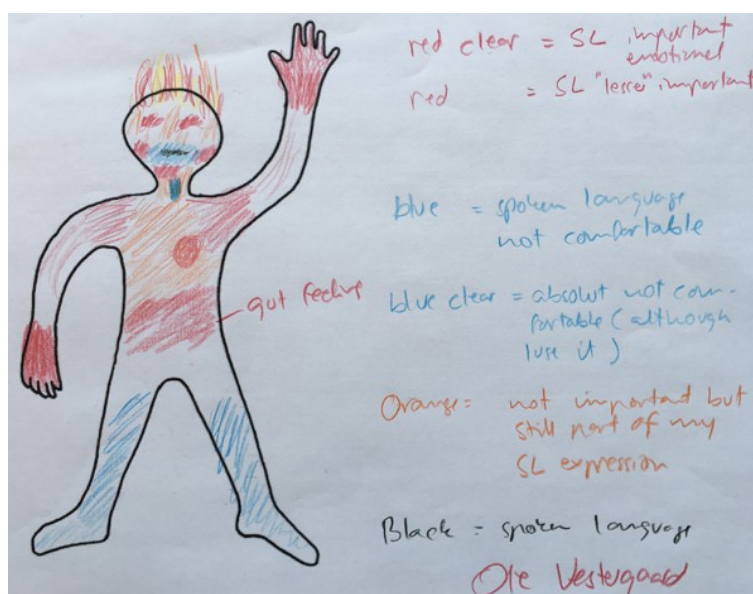 red clear = SL important
emotional
red = SL "lesser" important
blue = spoken language
not comfortable
gut feeling
blue clear = absolut not com-
fortable (although
I use it)
Orange = not important but
still part of my
SL expression
Black = spoken language
Ole Vestergaard